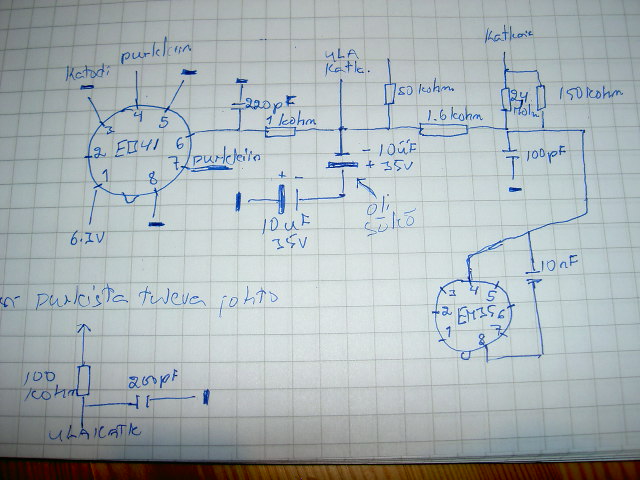 purkkiin
Katodi
ULA
Katk.
Katkaia
3
4
5
2
EB41
6
7
1
8
6.3V
purkkiin
220pF
1 kohm
50 kohm
1.6 kohm
24
Mohm
150kohm
100pF
- 10uF
+ 35V
+ -
10uF
35V
oli
50kö
10nF
3
4
5
2
EM35
6
1
7
8
purkista tuleva johto
100
kohm
200pF
ULA KATK